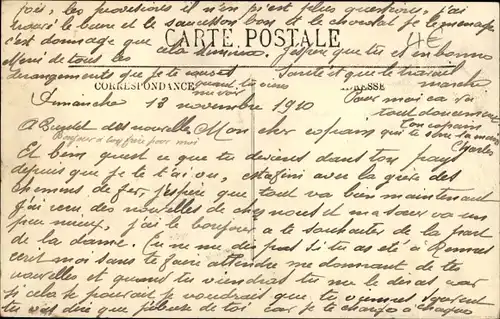 fois, les provisions il n'en n'est plus question, j'ai
trouvé le beurre et le saucisson bon et le chocolat je le ménage
c'est dommage que cela diminue, j'espère que tu es en bonne
4€
CARTE POSTALE
Merci de tous les
dérangements que je te
santé et que le travail
quand tu viens
me voir
marche
CORRESPONDANCE
ADRESSE
Dimanche 13 novembre 1910
Pour moi ca va
tout doucement
ton copain
qui te serre la main
Charles
des nouvelles Mon cher copain
Bonjour à pour moi
Et bien quest ce que tu deviens dans ton pays
depuis que je t'ai vu, est a fini avec la grève des
chemins de fer, j'espère que tout va bien maintenant
j'ai reçu des nouvelles de chez nous et ma sœur va un
peu mieux, j'ai le bonjour a te souhaiter de la part
de la dame. Tu ne me dis pas si tu as été à
écrit moi sans te faire attendre me donnant de tes
nouvelles et quand tu viendras tu me le diras car
si cela se pouvait je voudrais que tu viennes
tu vas dire que de toi car je te charge à chaque